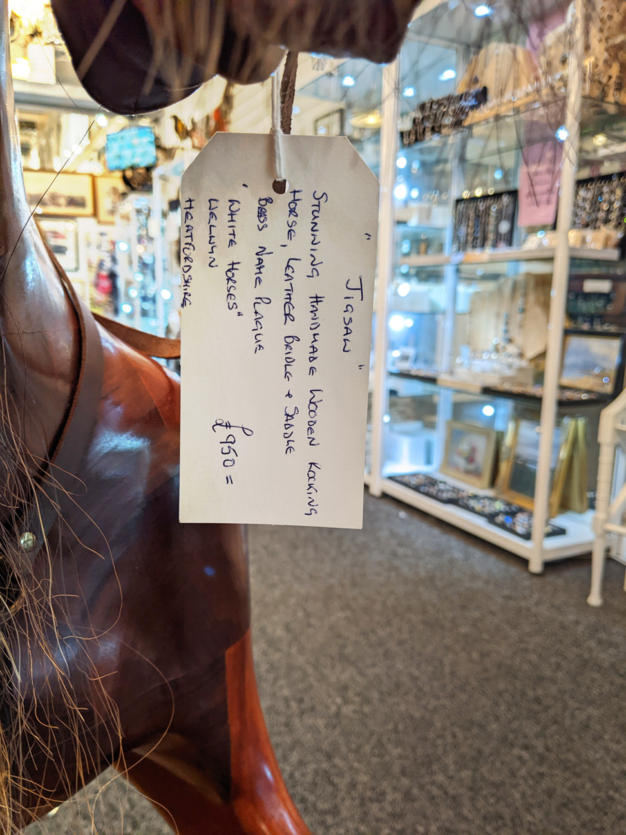 " JIGSAW "
STUNNING HANDMADE WOODEN ROCKING
HORSE, LEATHER BRIDLE & SADDLE
BEARS NAME PLAQUE
" WHITE HORSES"
WELWYN
HEATFORDSHIRE
£950 =